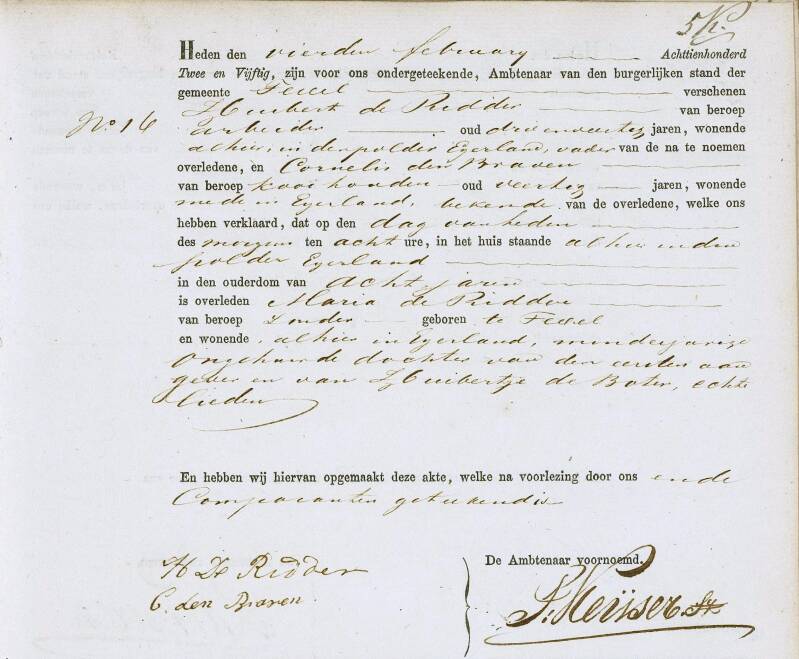 5K.
Heden den vierden february Achttienhonderd
Twee en Vijftig, zijn voor ons ondergeteekende, Ambtenaar van den burgerlijken stand der
gemeente Texel verschenen
Huibert de Ridder van beroep
No 16
arbeider oud drieenveertig jaren, wonende
alhier, in den polder Eyerland, vader van de na te noemen
overledene, en Cornelis den Braven
van beroep kooihouder oud veertig jaren, wonende
mede in Eyerland, bekende van de overledene, welke ons
hebben verklaard, dat op den dag van heden
des morgens ten acht ure, in het huis staande alhier in den
polder Eyerland
in den ouderdom van acht jaren
is overleden Maria de Ridder
van beroep Zonder geboren te Texel
en wonende alhier in Eyerland, minderjarige
Ongehuwde dochter van den eersten aan
gever en van Huibertje de Boter, echte
lieden
En hebben wij hiervan opgemaakt deze akte, welke na voorlezing door ons en de
Comparanten geteekend is
De Ambtenaar voornoemd.
H De Ridder
C. den Braven
Keijser